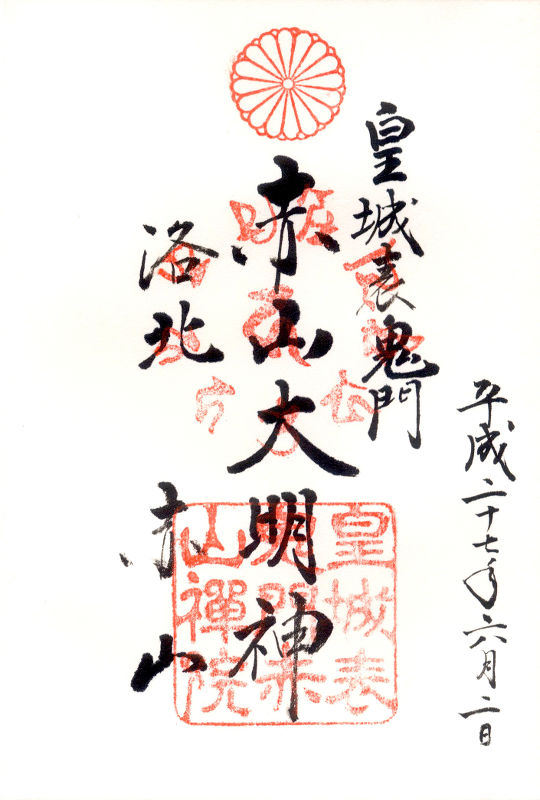 平成二十七年六月二日
皇城表鬼門
赤山大明神
洛北
赤山
皇城表
鬼門赤
山禅院